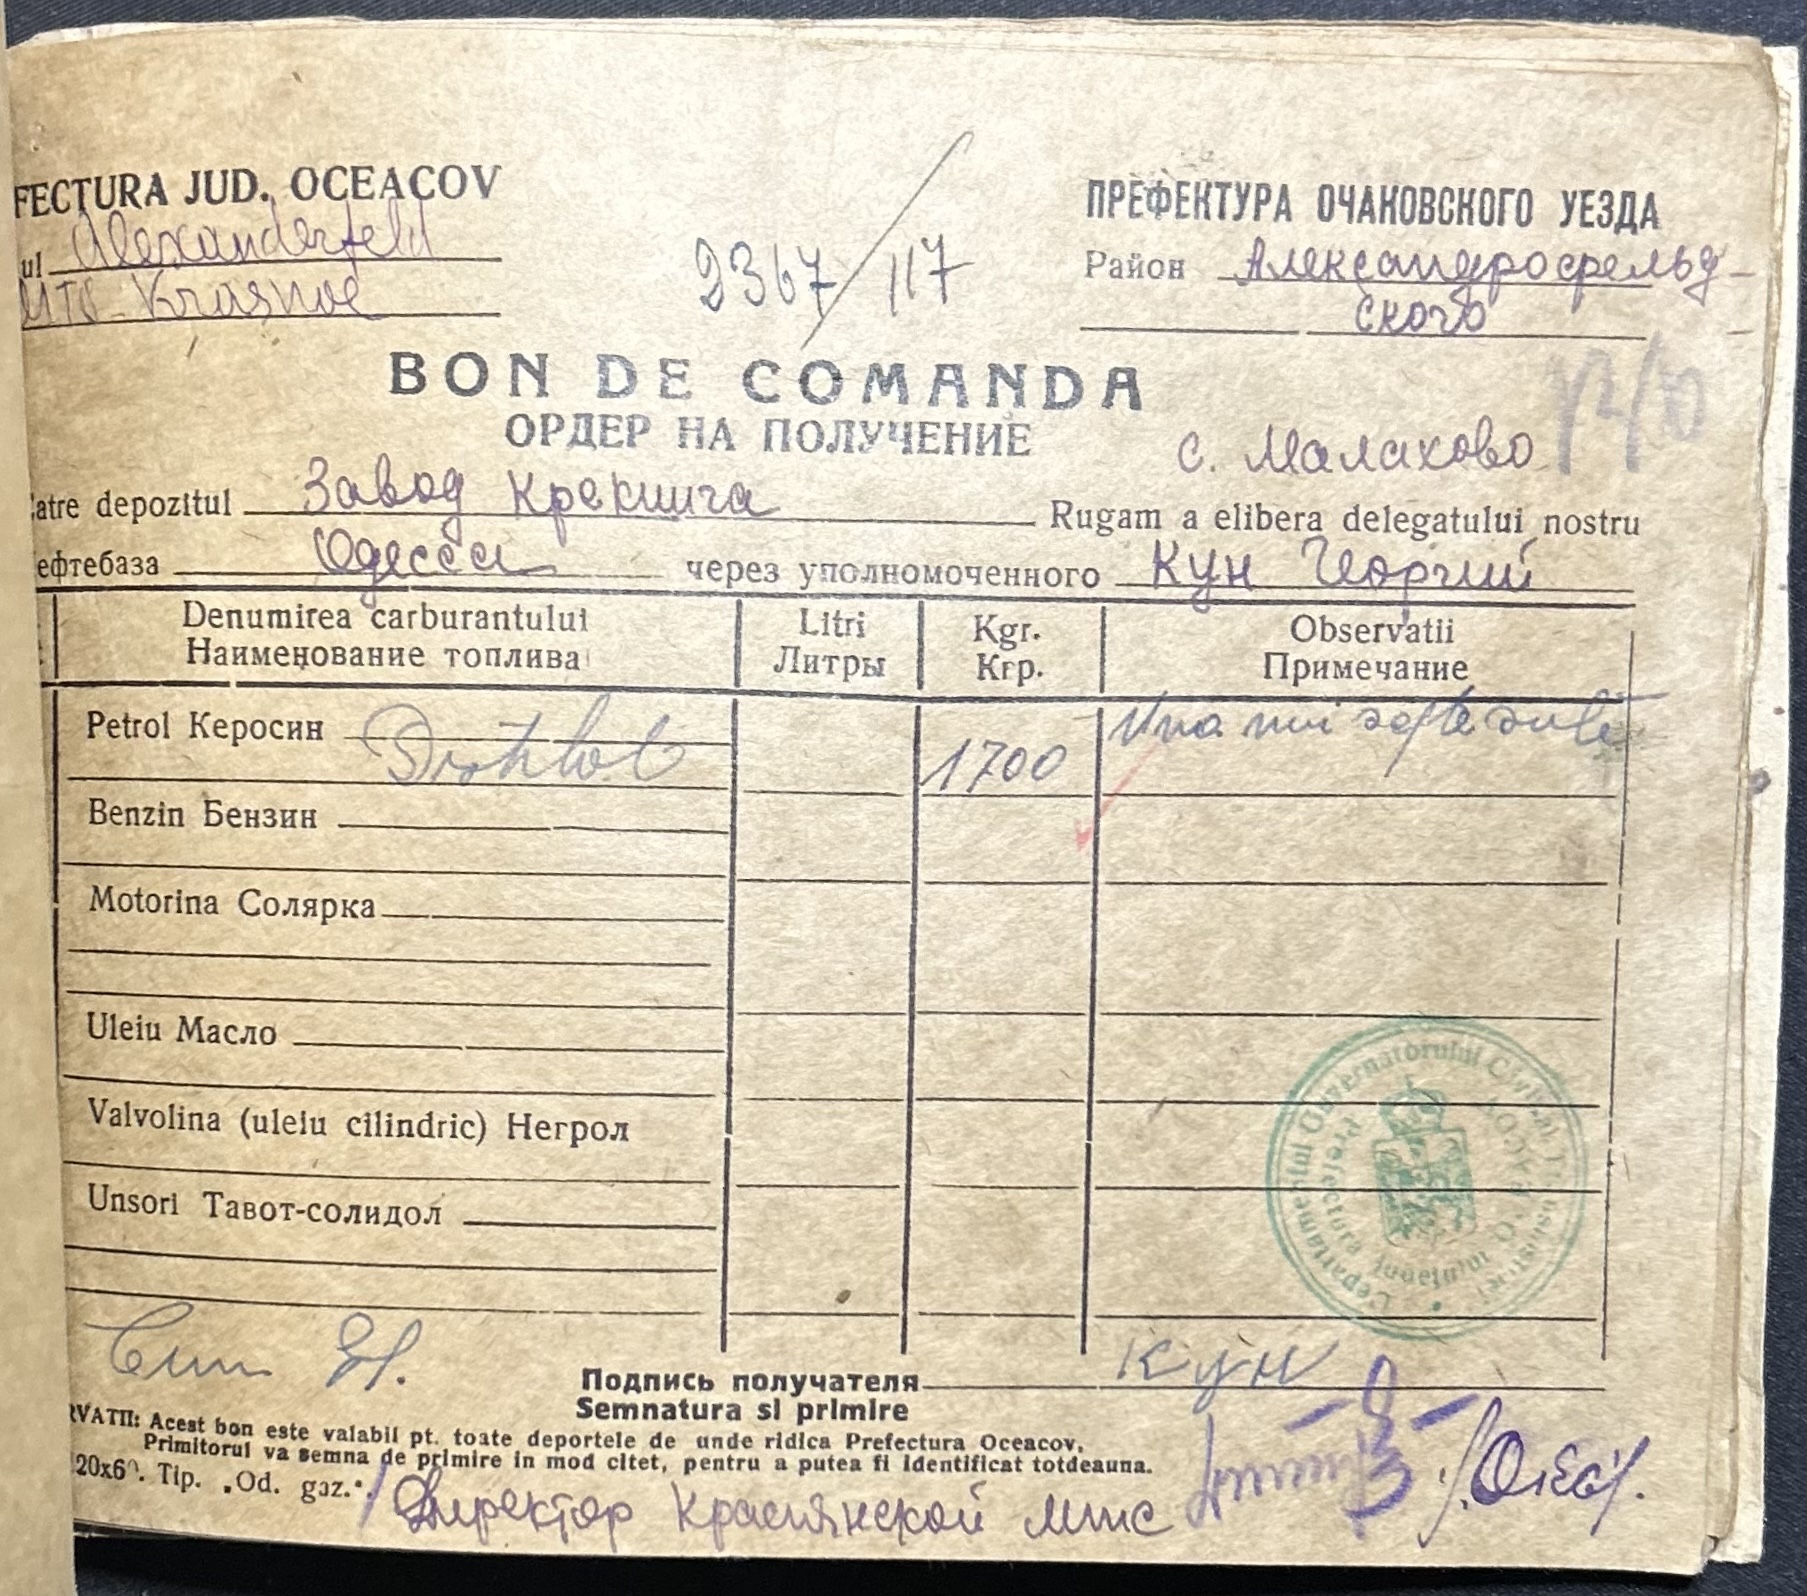 FECTURA JUD. OCEACOV
ul Alexanderfeld
MTS - Krasnoe
2367/117
ПРЕФЕКТУРА ОЧАКОВСКОГО УЕЗДА
Район Александрофельд-
ского
BON DE COMANDA
ОРДЕР НА ПОЛУЧЕНИЕ
с. Малахово
atre depozitul Завод Крекинга Rugam a elibera delegatului nostru
ефтебаза Одесса через уполномоченного Кун Георгий
Denumirea carburantului Litri Kgr. Observatii
Наименование топлива Литры Кгр. Примечание
Petrol Керосин 1700 Una mii sapte sute
Benzin Бензин
Motorina Солярка
Uleiu Масло
Valvolina (uleiu cilindric) Негрол
Unsori Тавот-солидол
Departamentul Guvernatorului Civil al Transnistriei
Prefectura Județului Oceacov
Подпись получателя Кун
Semnatura si primire
RVATII: Acest bon este valabil pt. toate deportele de unde ridica Prefectura Oceacov,
Primitorul va semna de primire in mod citet, pentru a putea fi identificat totdeauna.
20x6 . Tip. „Od. gaz.“.
Директор Краснянской мтс